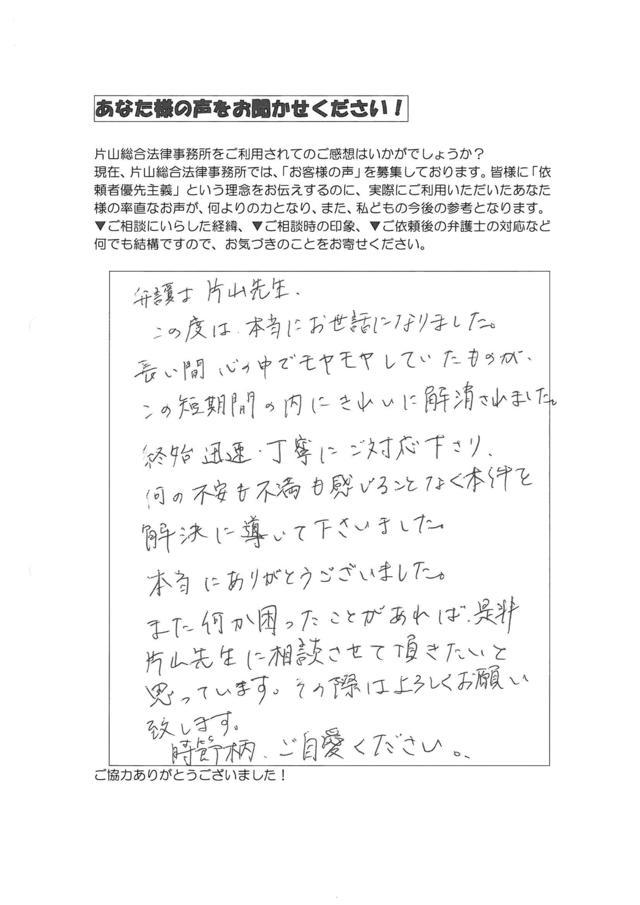 あなた様の声をお聞かせください！
片山総合法律事務所をご利用されてのご感想はいかがでしょうか？
現在、片山総合法律事務所では、「お客様の声」を募集しております。皆様に「依
頼者優先主義」という理念をお伝えするのに、実際にご利用いただいたあなた
様の率直なお声が、何よりの力となり、また、私どもの今後の参考となります。
▼ご相談にいらした経緯、▼ご相談時の印象、▼ご依頼後の弁護士の対応など
何でも結構ですので、お気づきのことをお寄せください。
弁護士 片山先生、
この度は、本当にお世話になりました。
長い間 心の中でモヤモヤしていたものが、
この短期間の内にきれいに解消されました。
終始 迅速・丁寧にご対応下さり、
何の不安も不満も感じることなく本件を
解決に導いて下さいました。
本当にありがとうございました。
また何か困ったことがあれば、是非
片山先生に相談させて頂きたいと
思っています。その際はよろしくお願い
致します。
時節柄、ご自愛ください。
ご協力ありがとうございました！